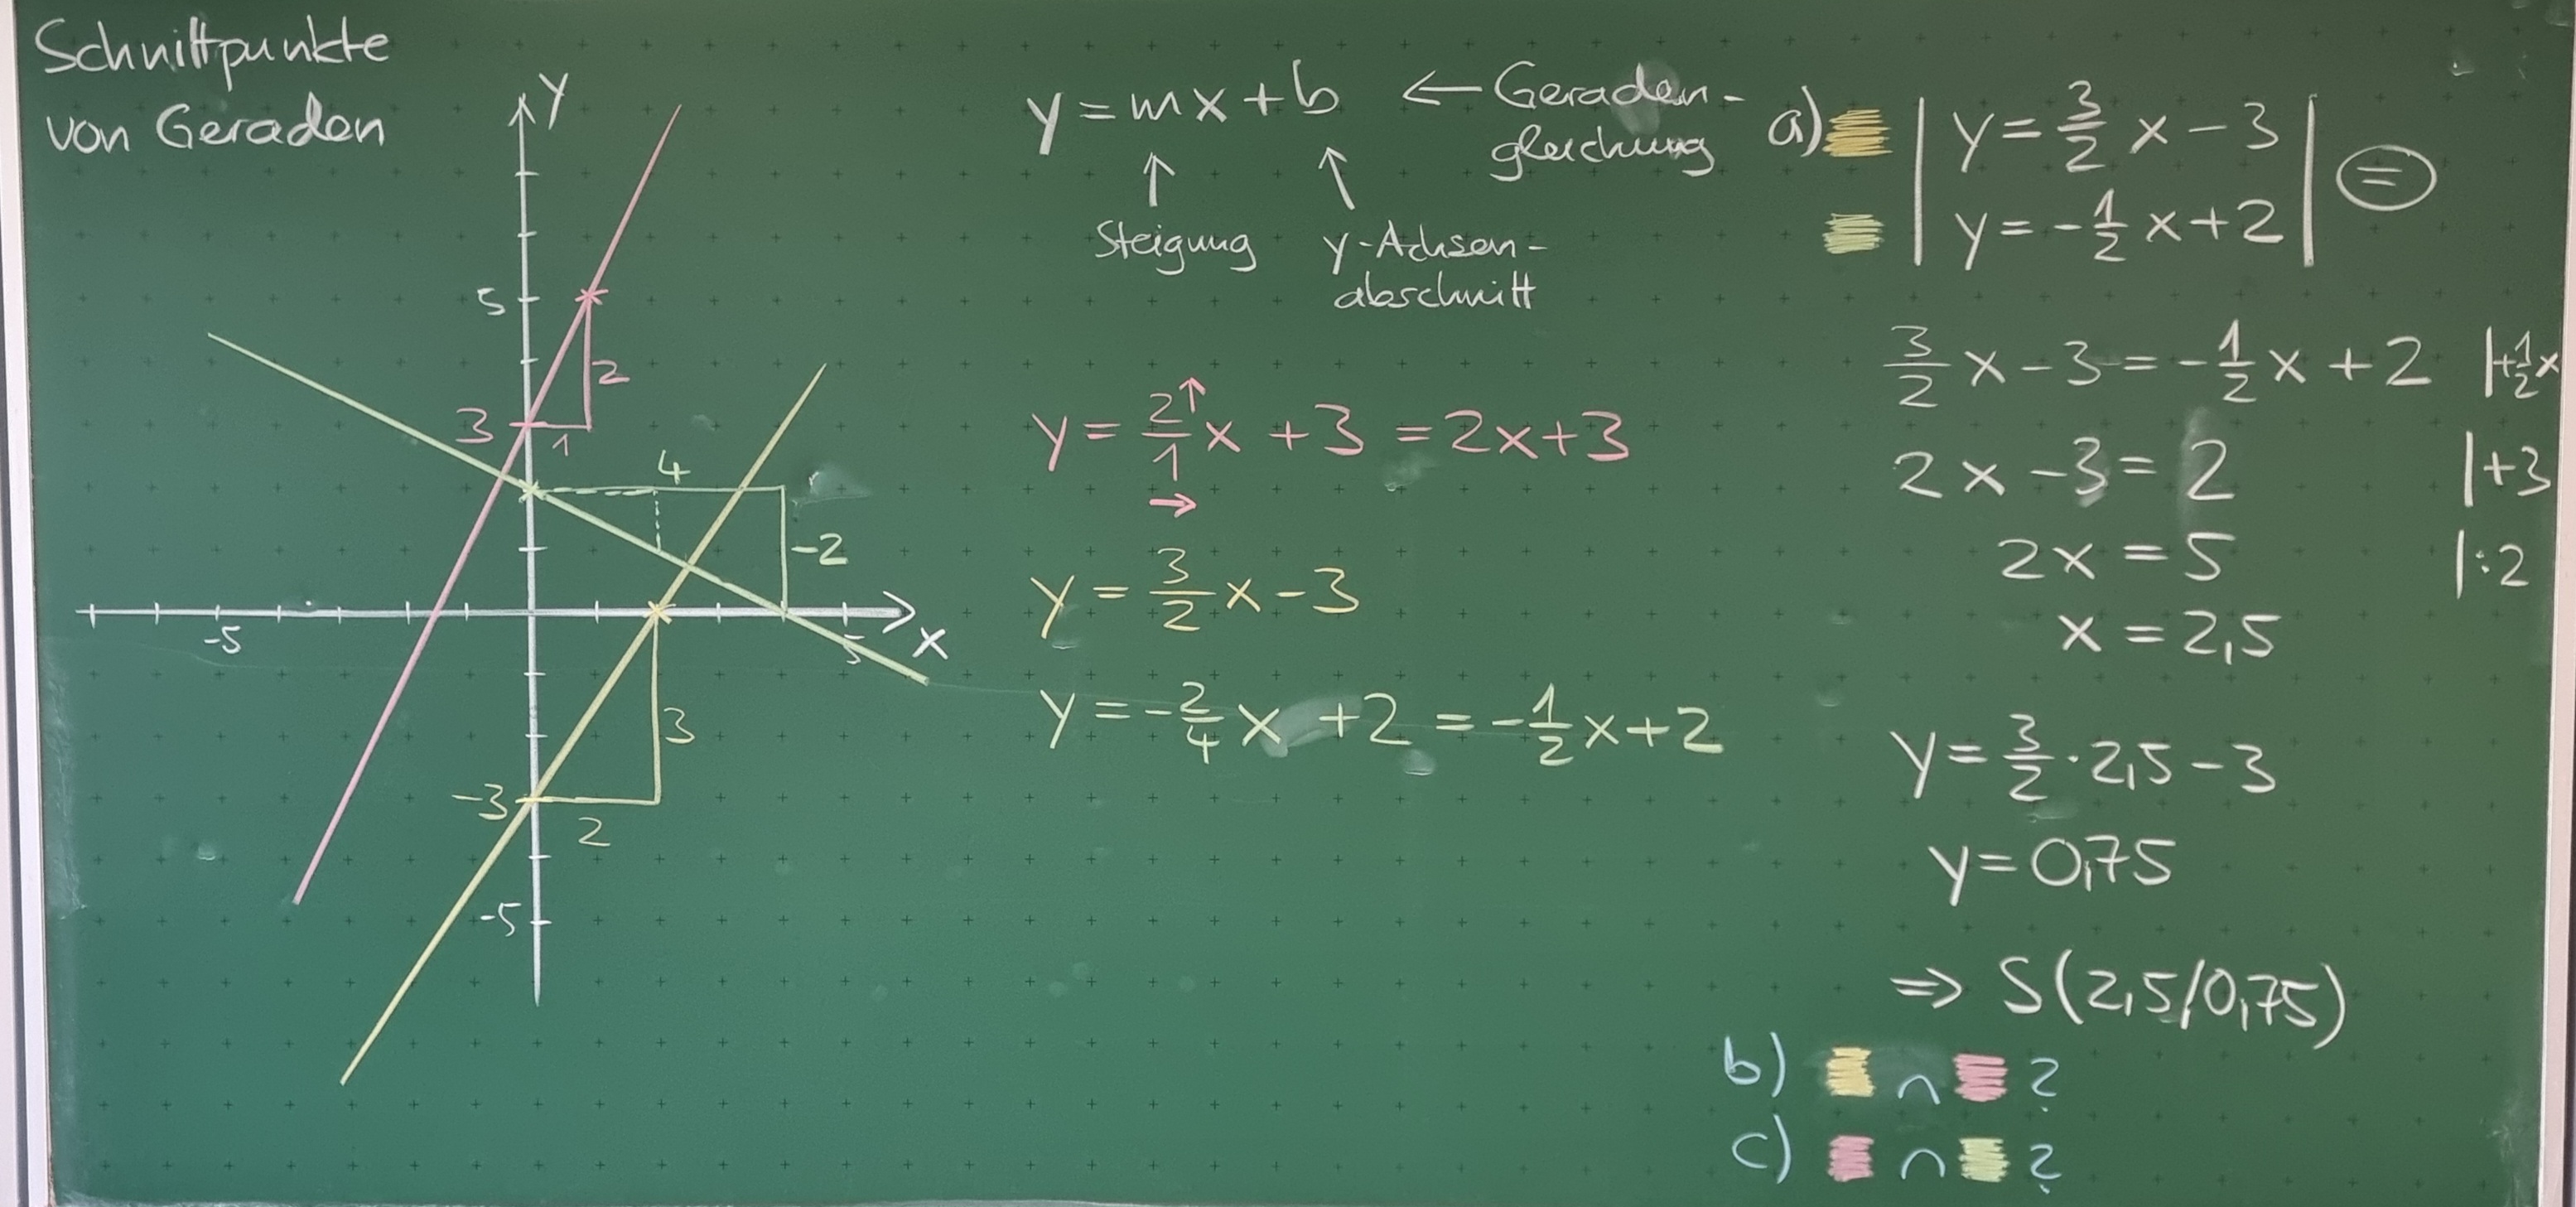 Schnittpunkte
von Geraden
y
5
3
2
1
4
-2
-5
5
x
3
-3
2
-5
y = mx + b ← Geraden-
gleichung
↑ ↑
Steigung y-Achsen-
abschnitt
y = 2/1 x + 3 = 2x + 3
↑
→
y = 3/2 x - 3
y = -2/4 x + 2 = -1/2 x + 2
a) | y = 3/2 x - 3 |
| y = -1/2 x + 2 | =
3/2 x - 3 = -1/2 x + 2 | +1/2 x
2x - 3 = 2 | +3
2x = 5 | :2
x = 2,5
y = 3/2 · 2,5 - 3
y = 0,75
⇒ S(2,5/0,75)
b) ∩ ?
c) ∩ ?